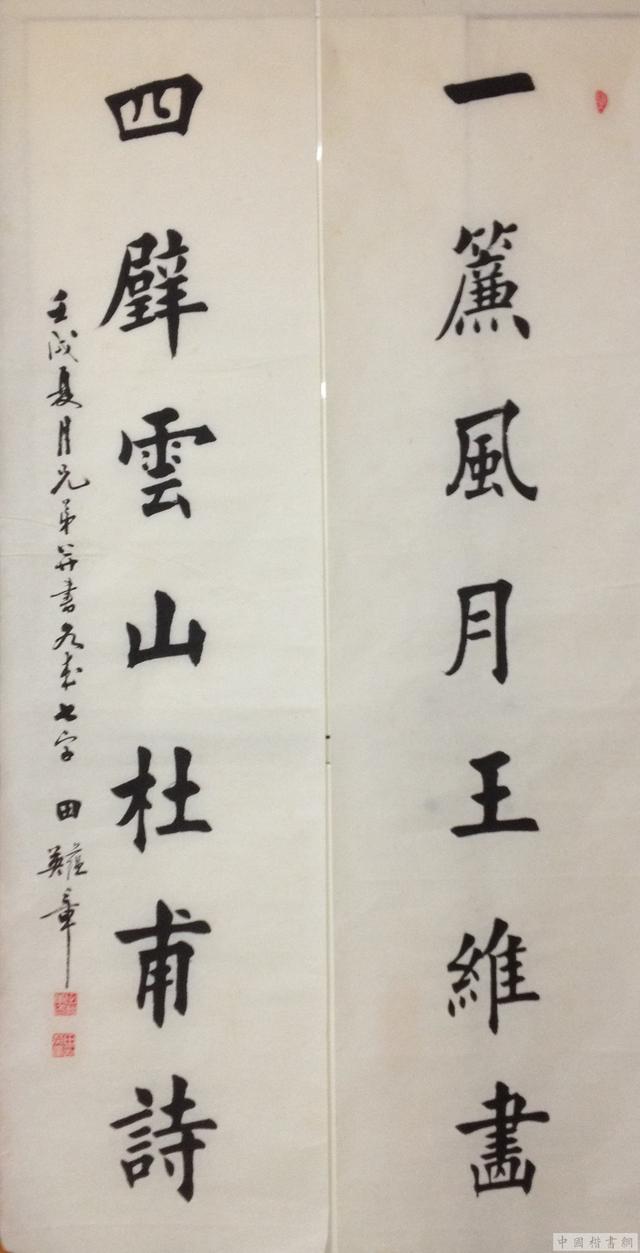 一簾風月王維畫
四壁雲山杜甫詩
壬戌夏月兄弟并書各七字 田蘊英章
中國楷書網